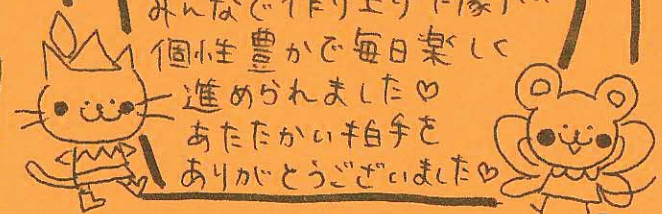 みんなで作り上げた
個性豊かで毎日楽しく
進められました♡
あたたかい拍手を
ありがとうございました♡